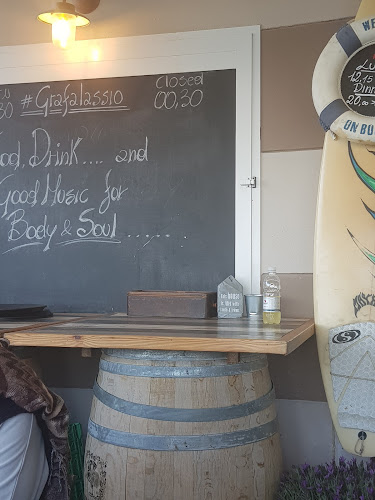 #Grafalassio
closed
00,30
Food, Drink.... and
Good Music for
Body & Soul ......
WE
Lu
12,15
Dinn
20,00
ON BO